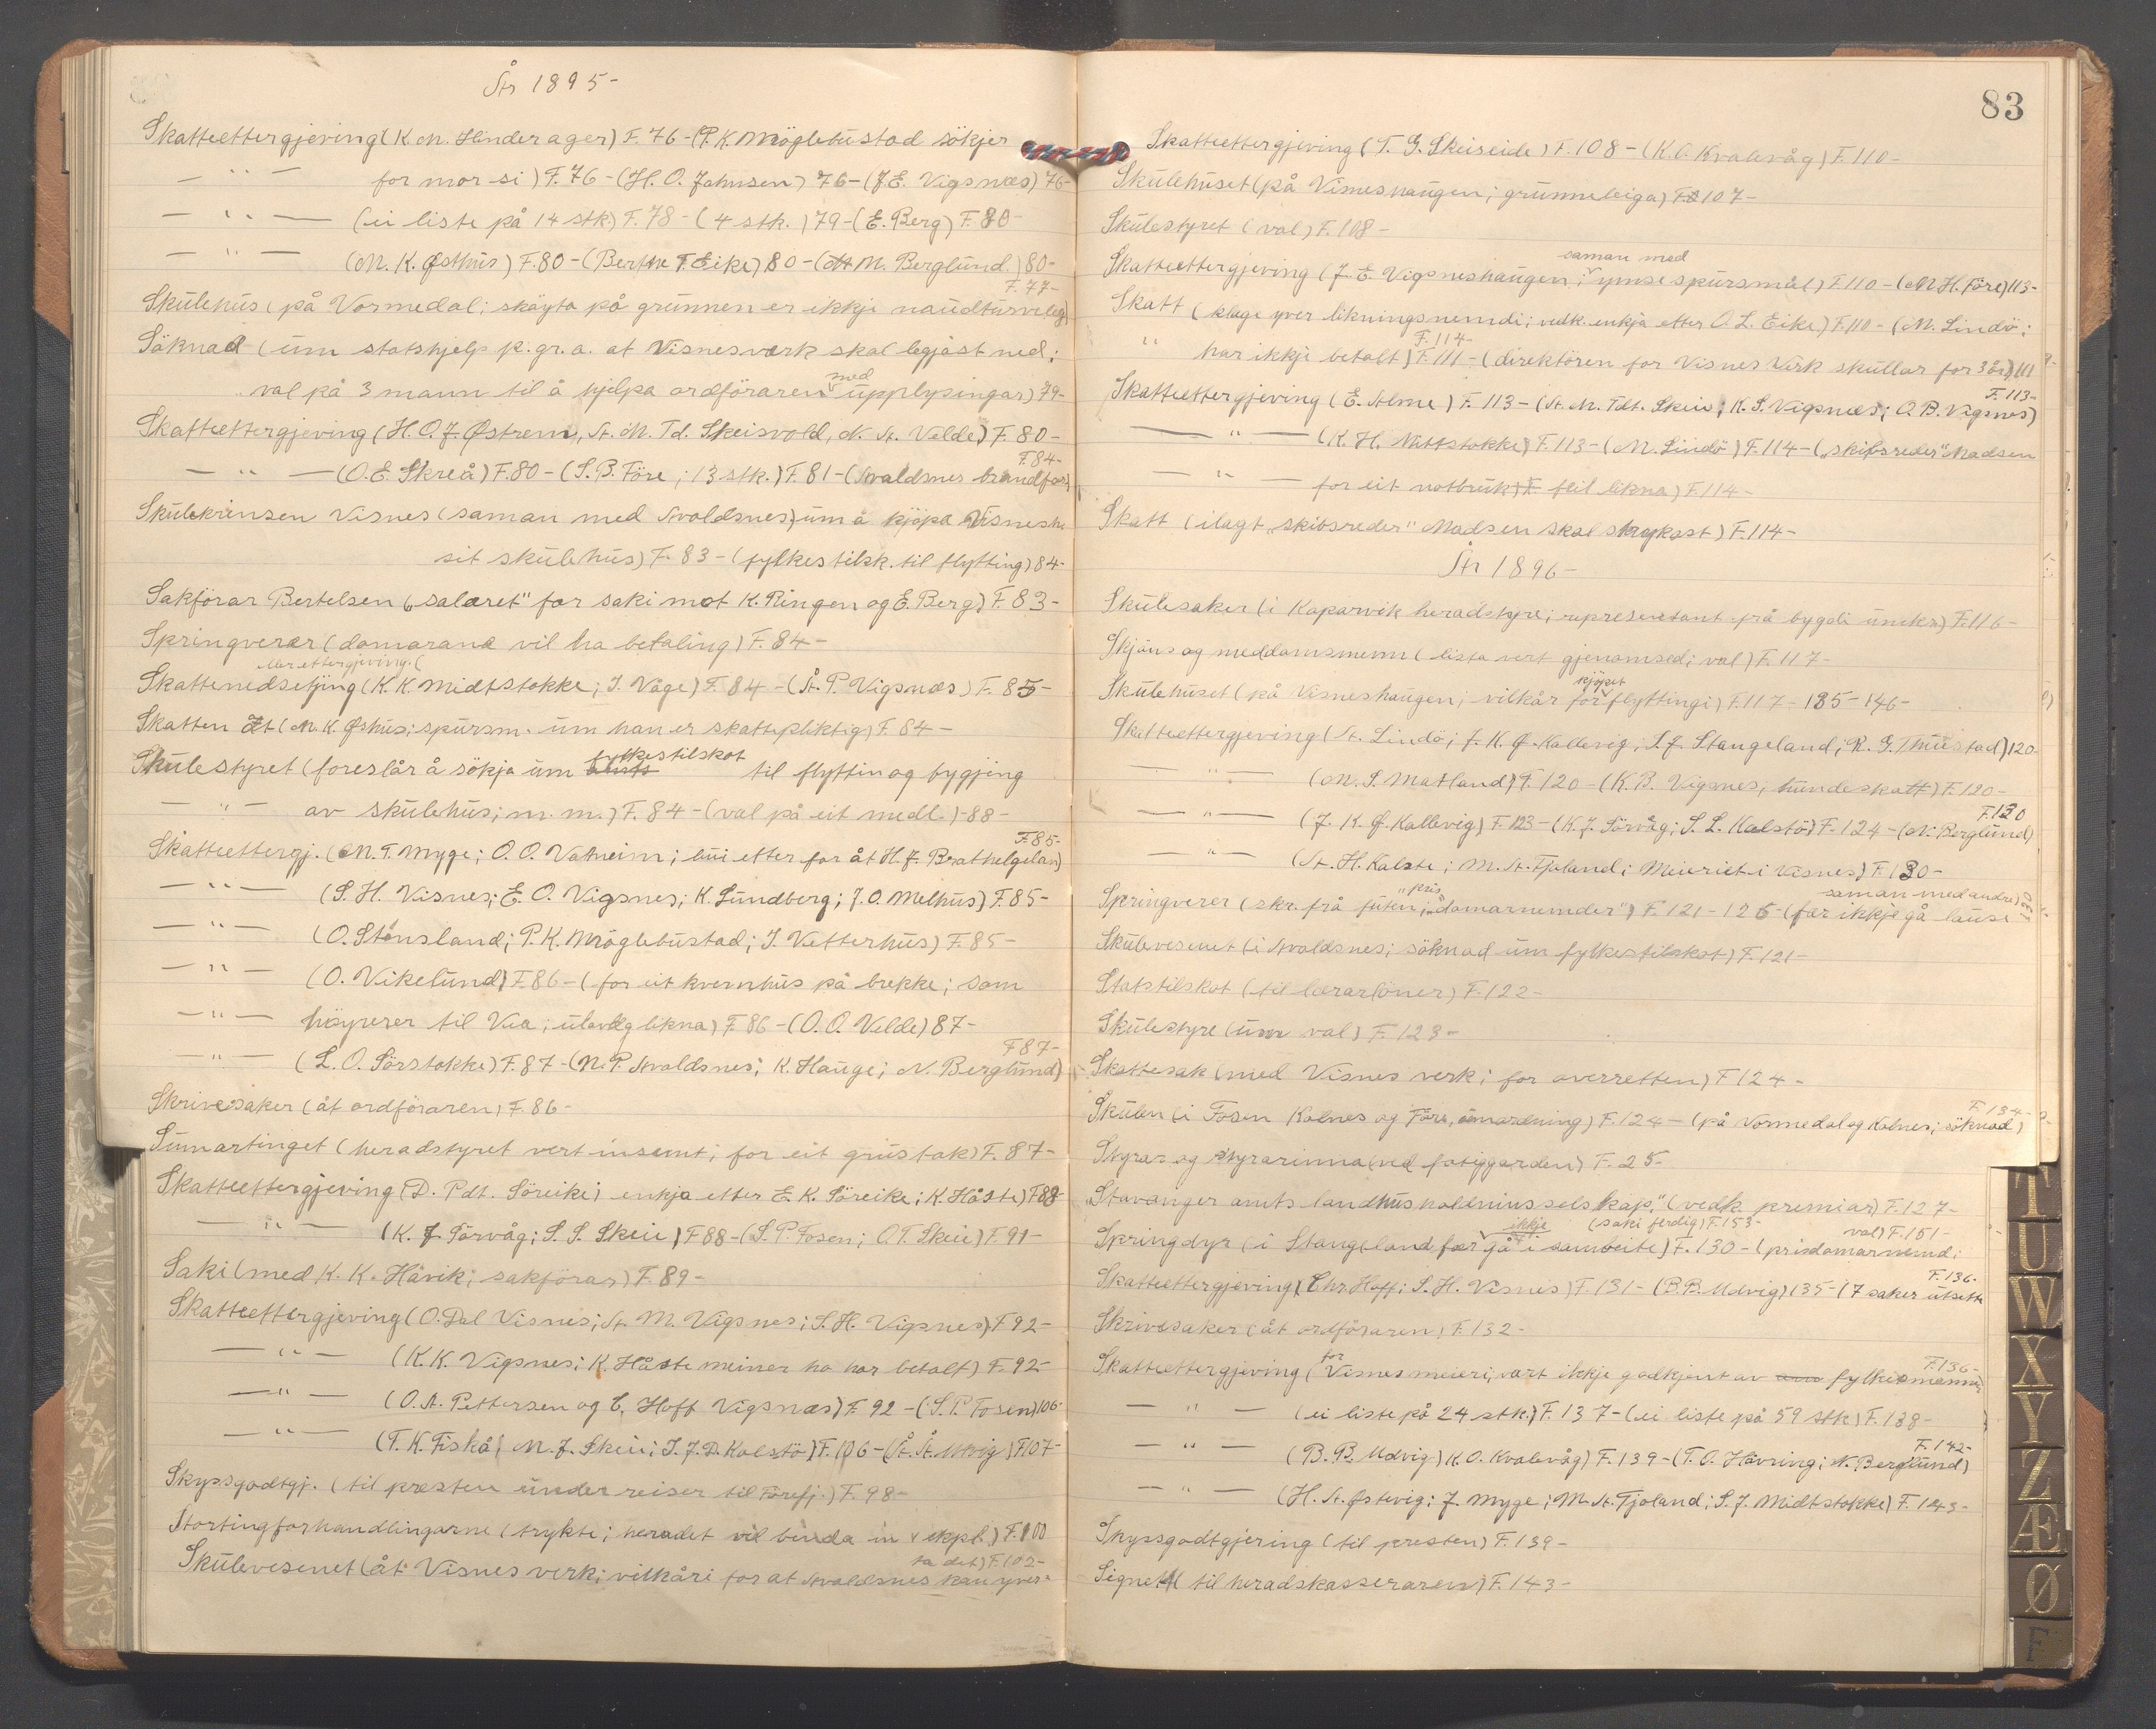 År 1895-
Skatteettergjeving (K. M. Hinderager) F. 76 - (P. K. Möglebustad sökjer
— " — for mor si) F. 76 - (H. O. Johnsen) 76 - (J. E. Vigsnæs) 76-
— " — (ei liste på 14 stk) F. 78 - (4 stk.) 79 - (E. Berg) F. 80-
— " — (M. K. Østhus) F. 80 - (Berthe T. Eike) 80 - (M. Berglund.) 80-
F. 77-
Skülehüs (på Vormedal; skøyta på grünnen er ikkji naüdtürveleg)
Söknad (üm statshjelp p.gr.a. at Visnesværk skal legjast ned;
val på 3 mann til å hjelpa ordföraren med üpplysingar) 79-
Skatteettergjeving (H. O. J. Østrem, St. M. Td. Skeisvold, N. St. Velde) F. 80-
F. 84-
— " — (O. E. Skreå) F. 80 - (S. B. Före; 13 stk.) F. 81 - (Avaldsnes brandfor)
Skülekrinsen Visnes (saman med Avaldsnes) üm å kjöpa Visnesh.
sit skülehüs) F. 83 - (fylkestilsk. til flytting) 84-
Sakförar Bertelsen („salæret" for saki mot K. Ringen og E. Berg) F. 83-
Springverar (domarane vil ha betaling) F. 84-
eller ettergjeving (
Skattenedsetjing (K. K. Midtstokke; I. Våge) F. 84 - (Å. P. Vigsnæs) F. 85-
Skatten åt (M. K. Øshüs; spürsm. üm han er skattepliktig) F. 84-
Skülestyret (foreslår å sökja üm fylkestilskot til flyttin og bygjing
— " — av skülehüs; m. m.) F. 84 - (val på eit medl.) - 88-
F. 85-
Skatteettergj. (M. T. Myge; O. O. Vatneim; büi etter far åt H. J. Brathelgelan)
— " — (S. H. Visnes; E. O. Vigsnes; K. Sündberg; J. O. Melhüs) F. 85-
— " — (O. Stönsland; P. K. Möglebüstad; I. Vetterhüs) F. 85-
— " — (O. Vikelünd) F. 86 - (for eit kvernhüs på brekke; som
— " — höyrerer til Vea; ülovleg likna) F. 86 - (O. O. Velde) 87-
F 87-
— " — (L. O. Sörstokke) F. 87 - (N. P. Avaldsnes; K. Haüge; N. Berglünd)
Skrivesaker (åt ordföraren) F. 86-
Sümartinget (heradstyret vert insemt; for eit grüstak) F. 87-
Skatteettergjeving (D. Pdt. Söreike; enkja etter E. K. Söreike; K. Håste) F 88-
— " — (K. J. Sörvåg; S. S. Skeie) F 88 - (S. P. Fosen; O. T. Skeie) F. 91-
Saki (med K. K. Håvik; sakförar) F. 89-
Skatteettergjeving (O. Dal Visnes; St. M. Vigsnes; S. H. Vigsnes) F 92-
— " — (K. K. Vigsnes; K. Håste meiner ho har betalt) F. 92-
— " — (O. A. Pettersen og C. Hoff Vigsnæs) F. 92 - (S. P. Fosen) 106-
— " — (T. K. Fiskå; M. J. Skeie; I. J. D. Kalstö) F. 106 - (Å. Å. Utvig) F 107-
Skyssgodtgj. (til presten ünder reiser til Förefj.) F. 98-
Stortingforhandlingarne (trykte; heradet vil binda in 1 ekpl.) F. 100
ta det) F. 102-
Skülevesenet (åt Visnes verk; vilkåri for at Avaldsnes kan yver-
83
Skatteettergjeving (T. G. Skeiseide) F. 108 - (K. O. Kvalevåg) F. 110-
Skülehüset (på Visneshaügen; grünneleiga) F. 107-
Skülestyret (val) F. 108-
saman med
Skatteettergjeving (J. E. Vigsneshaügen; ymse spürsmål) F. 110 - (M H. Före) 113-
Skatt (klage yver likningsnemdi; vedk. enkja etter O. L. Eike) F. 110 - (M. Lindö;
F. 114-
" har ikkje betalt) F. 111 - (direktören for Visnes Verk sküllar for 3 år) 111
F. 113-
Skatteettergjeving (E. Alme) F. 113 - (St. M. Tdt. Skeie; K. S. Vigsnæs; O. B. Vigsnes)
— " — (K. H. Mittstokke) F. 113 - (M. Lindö) F. 114 - („skibsreder" Madsen
— " — for eit notbrük) feil likna) F. 114-
Skatt (ilagt „skibsreder" Madsen skal strykast) F. 114-
År 1896-
Skülesaker (i Kopervik heradstyre; representant frå bygdi ünskn) F. 116-
Skjöns og meddomsmenn (lista vert gjenomsed; val) F. 117-
Skülehüset (på Visneshaügen; vilkår for kjöpet flyttingi) F. 117 - 185 - 146-
Skatteettergjeving (St. Lindö; J. K. J. Kallevig; S. J. Stangeland; R. G. Thüestad) 120-
— " — (M. S. Matland) F. 120 - (K. B. Vigsnes, hündeskatt) F. 120-
F. 130
— " — (J. K. J. Kallevig) F. 123 - (K. J. Sörvåg; S. L. Kalstö) F. 124 - (N. Berglünd)
— " — (St. H. Kalstö; M. St. Tjoland; Meieriet i Visnes) F. 130-
saman med andre)
Springverer (skr. frå füten; „pris domarnemder") F. 121 - 126 - (fær ikkje gå lause
Skülevesenet (i Avaldsnes; söknad üm fylkestilskot) F. 121-
Statstilskot (til lærarlöner) F. 122-
Skülestyre (üm val) F. 123-
Skattesak (med Visnes verk; for overretten) F 124-
F. 134-
Skülen (i Fosen Kolnes og Före, ümordning) F. 124 - (på Vormedal og Kolnes; söknad)
Styrar og styrarinna (ved fatiggarden) F. 25-
„Stavanger amts landhüsholdninsselskap" (vedk. premiar) F. 127-
ikkje (saki ferdig) F. 153- val) F. 151-
Springdyr (i Stangeland fær gå i sambeite) F. 130 - (prisdomarnemd;
F. 136-
Skatteettergjeving (Chr. Hoff; S. H. Visnes) F. 131 - (B. B. Udvig) 135 - (7 saker utsette
Skrivesaker (åt ordföraren) F. 132-
F. 136-
Skatteettergjeving (for Visnes meieri; vart ikkje godkjent av fylkesmannen
— " — (ei liste på 24 stk.) F. 137 - (ei liste på 59 stk) F. 138-
F. 142-
— " — (B. B. Udvig) K. O. Kvalevåg) F. 139 - (T. O. Hövring; N. Berglünd)
— " — (H. A. Østevig; J. Myge; M. A. Tjoland; S. J. Midtstokke) F. 143-
Skyssgodtgjering (til presten) F. 139-
Signet (til heradskasseraren) F. 143-
T
U
W
X
Y
Z
Æ
Ø